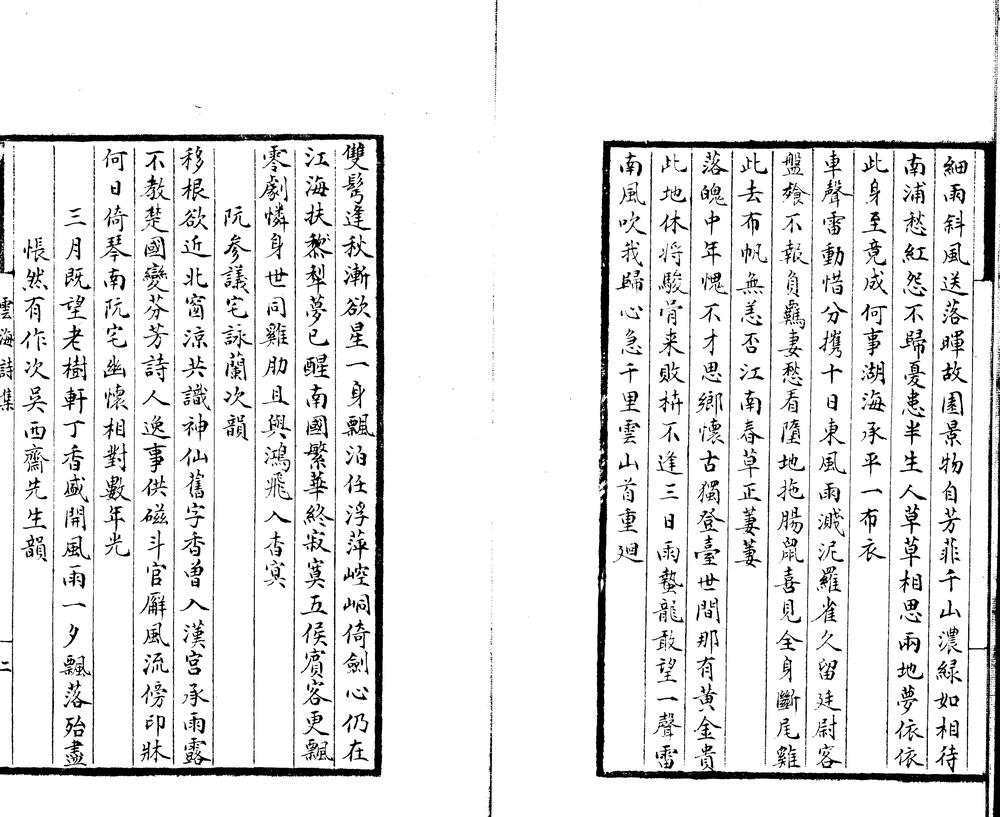 細雨斜風送落暉故園景物自芳菲千山濃緑如相待
南浦愁紅怨不歸憂患半生人草草相思兩地夢依依
此身至竟成何事湖海承平一布衣
車聲雷動惜分攜十日東風雨濺泥羅雀久留廷尉客
盤飱不報負羈妻愁看墮地拖腸鼠喜見全身斷尾雞
此去布帆無恙否江南春草正萋萋
落魄中年愧不才思鄉懷古獨登臺世間那有黄金貴
此地休將駿骨来敗枿不逢三日雨蟄龍敢望一聲雷
南風吹我歸心急千里雲山首重廻
雙鬓逢秋漸欲星一身飄泊任浮萍崆峒倚劍心仍在
江海扶黎犁夢已醒南國繁華終寂寞五侯賓客更飄
零劇憐身世同雞肋且與鴻飛入杳冥
阮參議宅詠蘭次韻
移根欲近北窗涼共識神仙舊字香曾入漢宮承雨露
不教楚國變芬芳詩人逸事供磁斗官廨風流傍印牀
何日倚琴南阮宅幽懷相對數年光
三月既望老樹軒丁香盛開風雨一夕飄落殆盡
悵然有作次吳西齋先生韻
雲海詩集
二